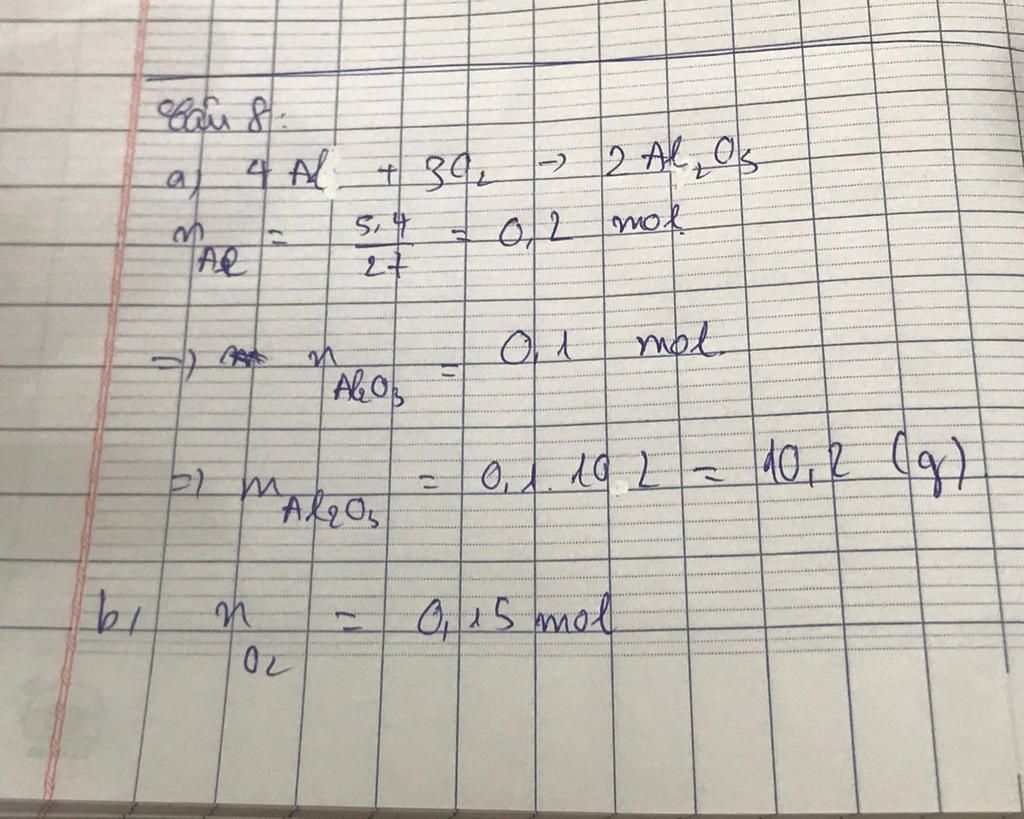 Bài 8:
a) 4 Al + 3O₂ → 2 Al₂O₃
n_Al = 5,4/27 = 0,2 mol
=> n_Al₂O₃ = 0,1 mol
=> m_Al₂O₃ = 0,1.102 = 10,2 (g)
b, n_O₂ = 0,15 mol